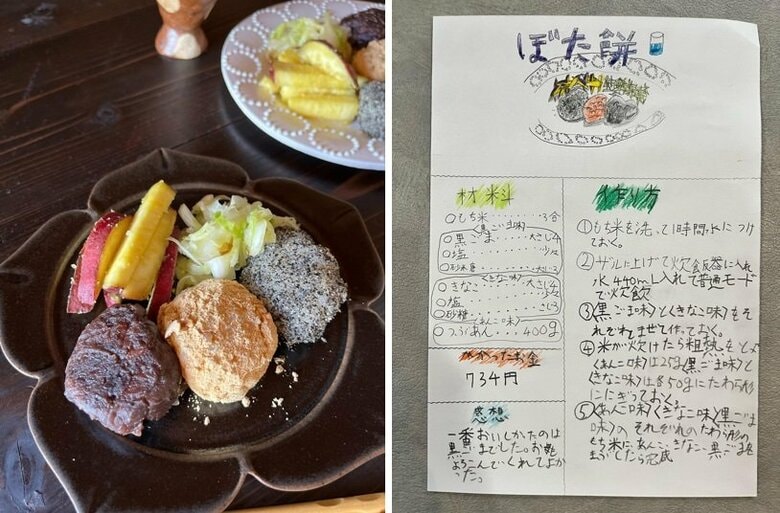 ぼた餅
材料
○もち米‥‥‥‥3合
黒ごま味
○黒ごま‥‥‥大さじ4
○塩‥‥‥‥少々
○砂糖‥‥‥大さじ3
きなこ味
○きなこ‥‥‥大さじ4
○塩‥‥‥‥少々
○砂糖‥‥‥‥さじ3
あんこ味
○つぶあん‥‥400g
かかったお金
734円
感想
一番おいしかたのは
黒ごまでした。お
よろこんでくれてよか
った。
作り方
①もち米を洗って1時間水につけ
ておく。
②ザルに上げて炊飯器に入れ
水440mL入れて普通モード
で炊飯
③〈黒ごま味〉と〈きなこ味〉をそ
れぞれまぜて作っておく。
④米が炊けたら粗熱をとり
〈あんこ味〉は25g〈黒ごま味〉と
〈きなこ味〉は50gにたわら形
ににぎっておく。
⑤〈あんこ味〉〈きなこ味〉〈黒ごま
味〉のそれぞれのたわら形の
もち米に、あんこ、きなこ、黒ごまを
まぶしたら完成